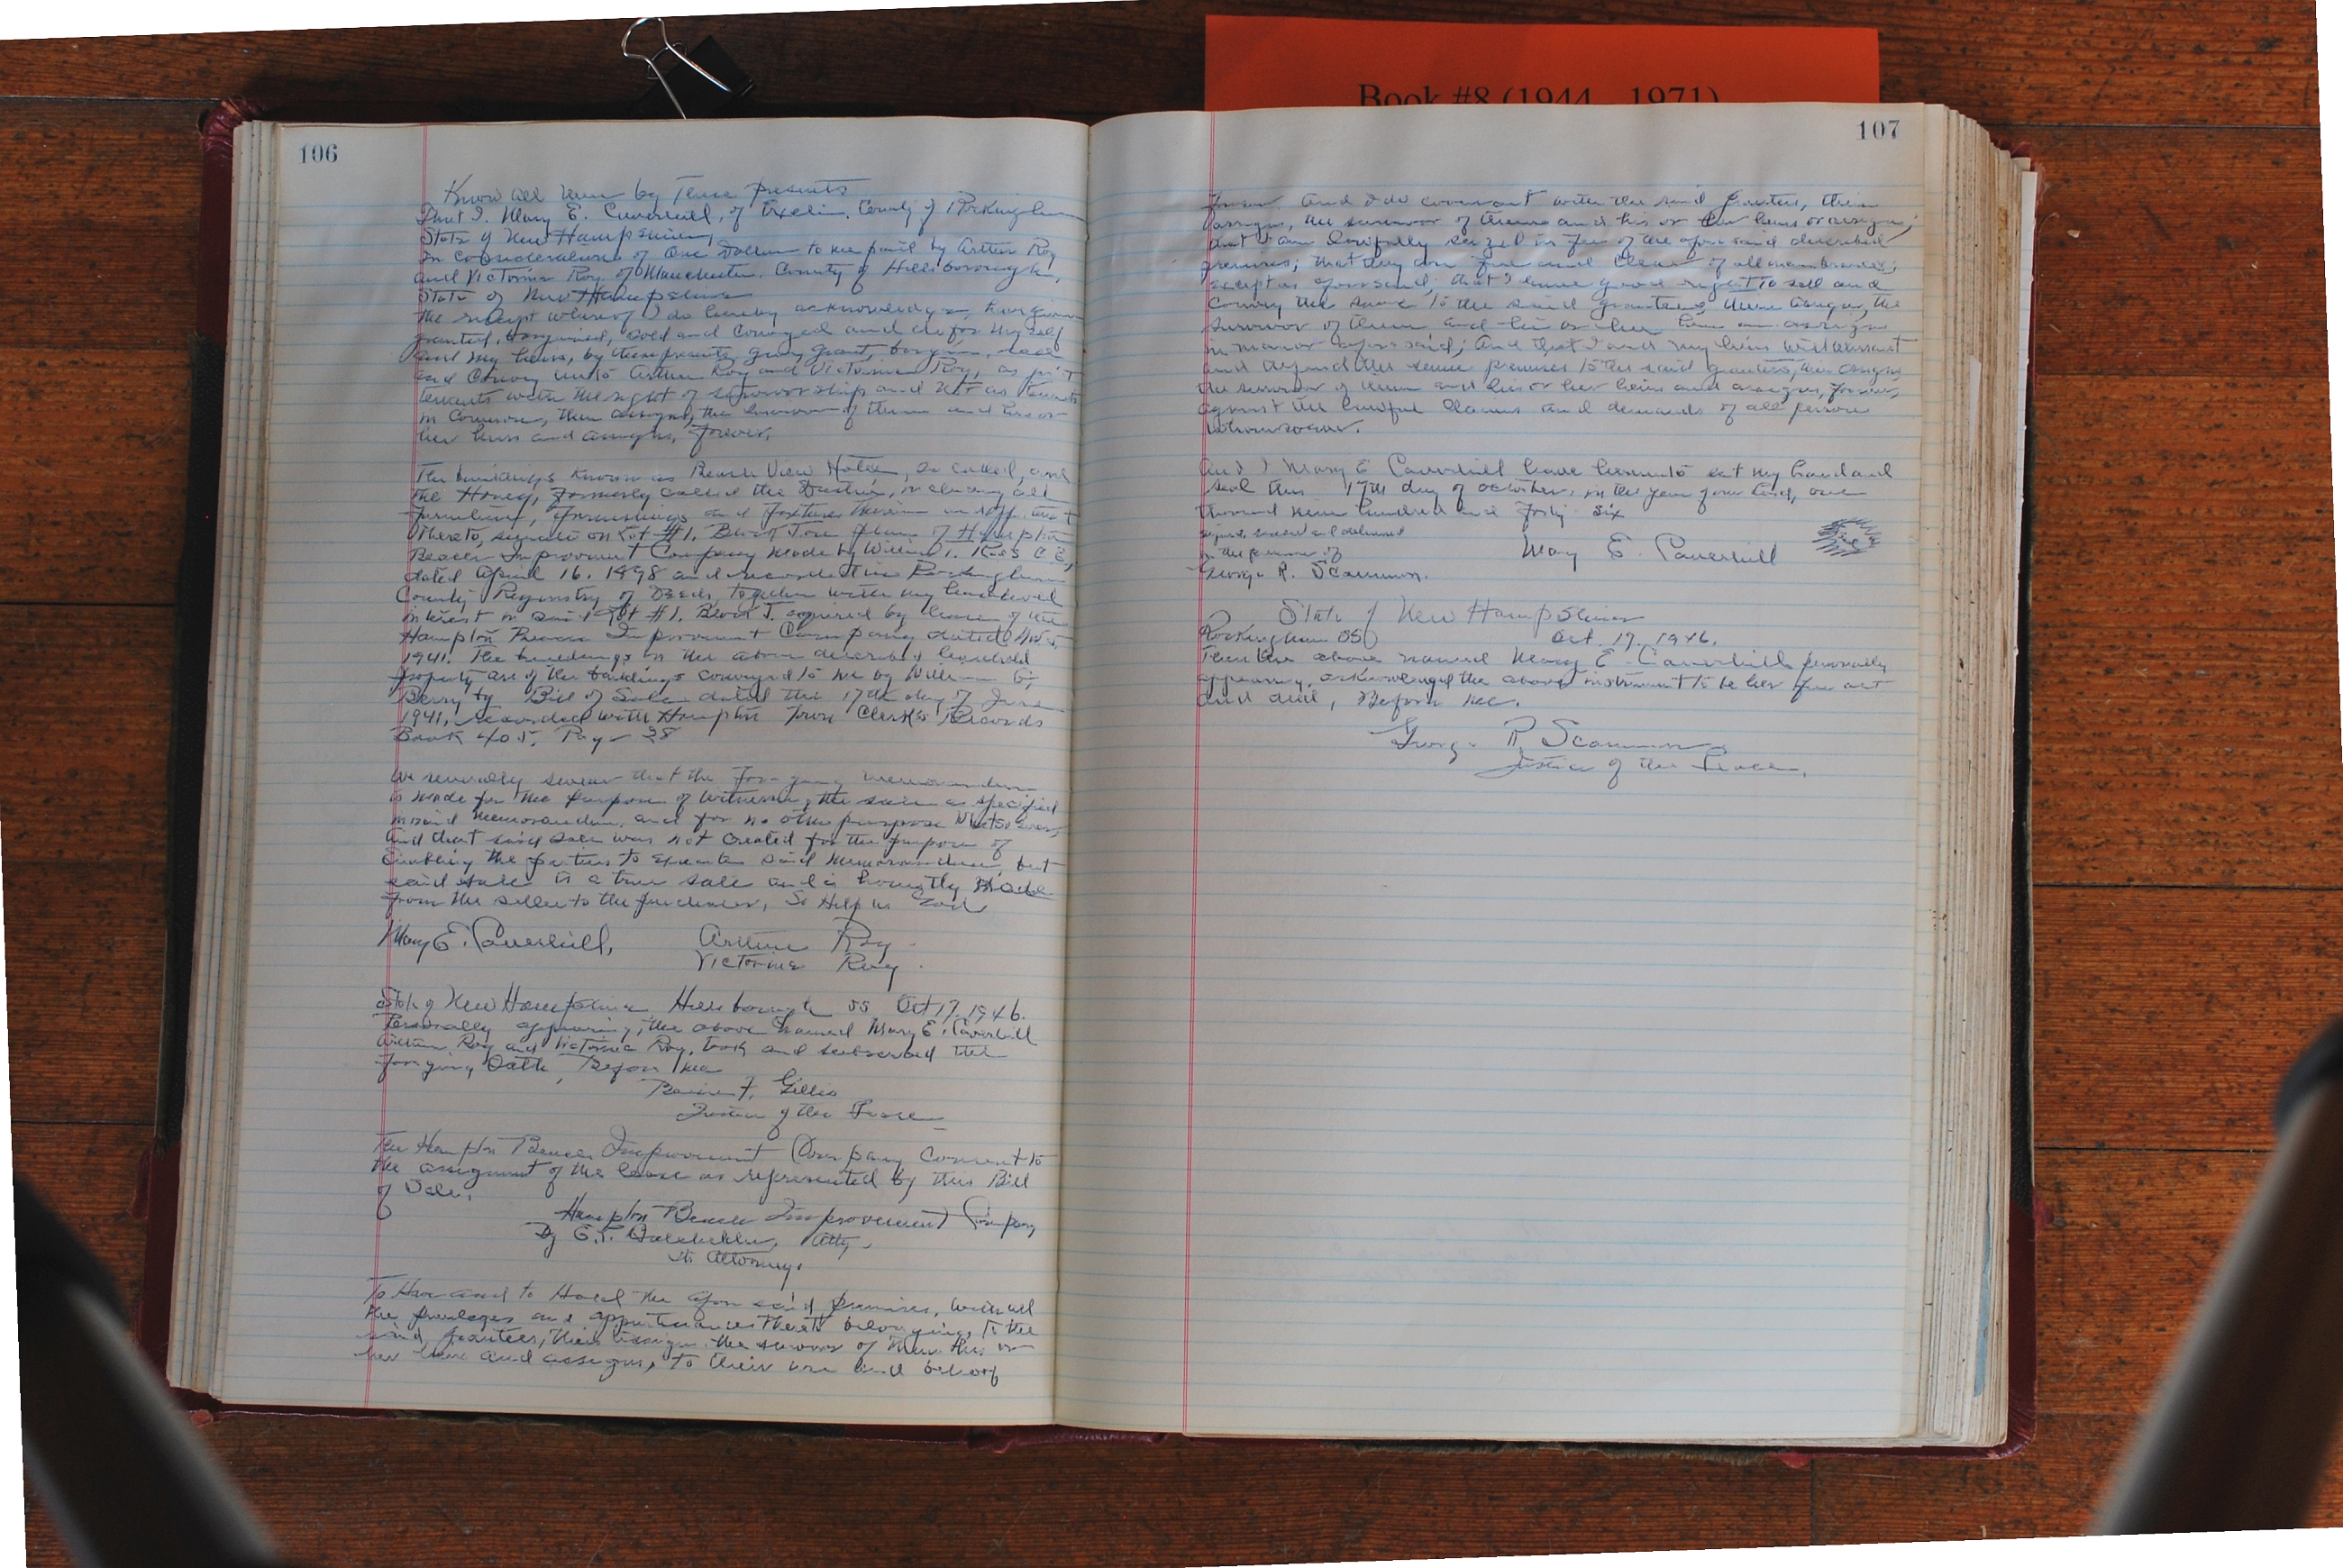 Book #8 (1944 - 1971)
106
Know all men by These presents
That I. Mary E. Caverhill, of Exeter, County of Rockingham
State of New Hampshire,
In consideration of One Dollar to me paid by Arthur Roy
and Victorine Roy, of Manchester, County of Hillsborough,
State of New Hampshire
the receipt whereof I do hereby acknowledge, have given
granted, bargained, sold and conveyed and do for myself
and my heirs, by these presents, give, grant, bargain, sell
and convey unto Arthur Roy and Victorine Roy, as joint
tenants with the right of survivorship and not as tenants
in common, their assigns, the survivor of them and his or
her heirs and assigns, forever,
The buildings known as Beach View Hotel, so called, and
the Honey, formerly called the, including all
furniture, furnishings and fixtures therein or appurtenant
thereto, situate on Lot #1. Block J on plan of Hampton
Beach Improvement Company made by William T. Ross C.E,
dated April 16. 1898 and recorded in Rockingham
County Registry of Deeds, together with my leasehold
interest in said Lot #1. Block J. acquired by lease of the
Hampton Beach Improvement Company dated Nov 5
1941. The buildings on the above described leasehold
property are of the buildings conveyed to me by William G,
Berry by Bill of Sale dated the 17th day of June
1941, recorded with Hampton Town Clerk's Records
Book 405. Page 38
We severally swear that the foregoing memorandum
is made for the purpose of witnessing the sale as specified
in said memorandum, and for no other purpose whatsoever,
and that said sale was not created for the purpose of
enabling the parties to execute said memorandum, but
said sale is a true sale and is honestly made
from the seller to the purchaser, So Help us God
Mary E. Caverhill, Arthur Roy
Victorine Roy.
State of New Hampshire Hillsborough SS Oct 17. 1946.
Personally appearing, the above named Mary E. Caverhill
Arthur Roy and Victorine Roy, took and subscribed the
foregoing Oath, Before me
F. Gillis
Justice of the Peace
The Hampton Beach Improvement Company consent to
the assignment of the lease as represented by this Bill
of Sale.
Hampton Beach Improvement Company
By Atty.
Its Attorney.
To Have and to Hold the aforesaid premises, with all
the privileges and appurtenances thereto belonging, to the
said grantees, their assigns, the survivor of them, his or
her heirs and assigns, to their use and behoof
107
forever And I do covenant with the said grantees, their
assigns, the survivor of them and his or her heirs or assigns;
that I am lawfully seized in fee of the aforesaid described
premises; that they are free and clear of all encumbrances;
except as aforesaid; that I have good right to sell and
convey the same to the said grantees, their assigns, the
survivor of them and his or her heirs or assigns
in manor aforesaid; and that I and my heirs will warrant
and defend the same premises to the said grantees, their assigns
the survivor of them and his or her heirs and assigns, forever,
against the lawful claims and demands of all persons
whomsoever.
And I Mary E Caverhill have hereunto set my hand and
seal this 17th day of October, in the year of our Lord, one
thousand nine hundred and forty six
signed, sealed and delivered
in the presence of
George R. Scammon.
Mary E. Caverhill
Seal
State of New Hampshire
Rockingham SS Oct. 17. 1946.
Then the above named Mary E. Caverhill personally
appearing, acknowledged the above instrument to be her free act
and deed, Before me.
George R. Scammon
Justice of the Peace.